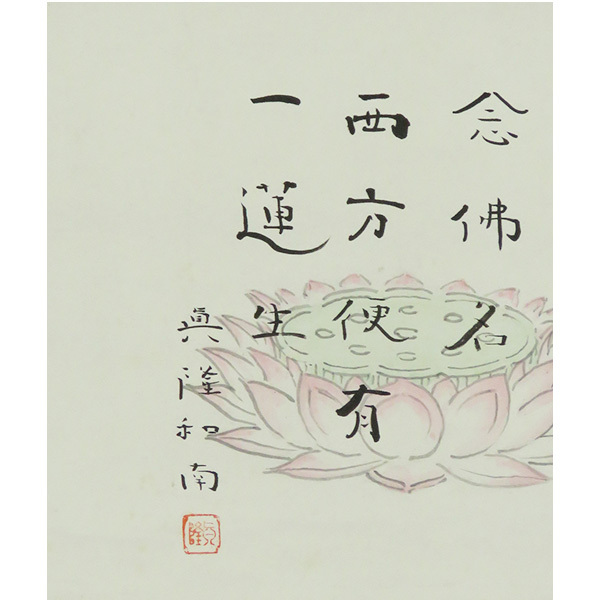 念佛名
西方便有
一蓮生
眞隆和南